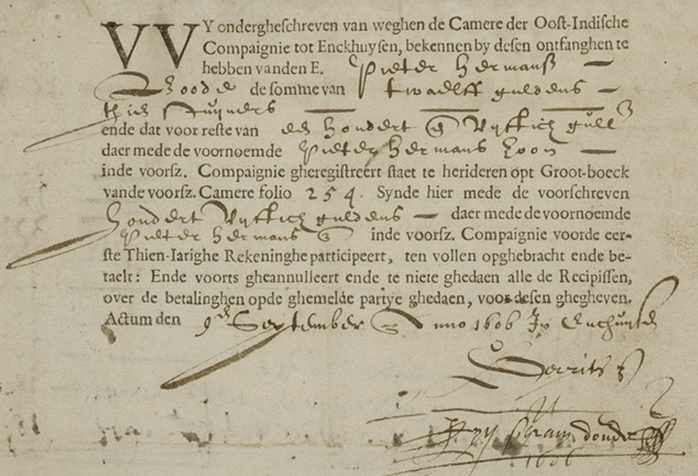 VVY ondergheschreven van weghen de Camere der Oost-Indische
Compaignie tot Enckhuysen, bekennen by desen ontfanghen te
hebben vanden E. Pieter Hermansz
de somme van twaelff guldens
thien stuyvers
ende dat voor reste van een hondert vijftich gull
daer mede de voornoemde Pieter Hermans zoon
inde voorsz. Compaignie gheregistreert staet te herideren opt Groot-boeck
vande voorsz. Camere folio 254. Synde hier mede de voorschreven
hondert vijftich guldens daer mede de voornoemde
Pieter Hermans inde voorsz. Compaignie voorde eer-
ste Thien-Iarighe Rekeninghe participeert, ten vollen opghebracht ende be-
taelt: Ende voorts gheannulleert ende te niete ghedaen alle de Recipissen,
over de betalinghen opde ghemelde partye ghedaen, voor desen ghegheven.
Actum den 9en September Anno 1606
Gerritsz
1606